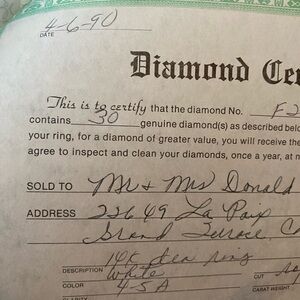 4-6-90
DATE
Diamond Ce
This is to certify that the diamond No. F2
contains 30 genuine diamond(s) as described belo
your ring, for a diamond of greater value, you will receive the
agree to inspect and clean your diamonds, once a year, at n
SOLD TO Mr & Mrs Donald
ADDRESS 22649 La Paix
Grand Terrace, C
14K ring
DESCRIPTION White
COLOR 4-5A CUT
CARAT WEIGHT
CLARITY